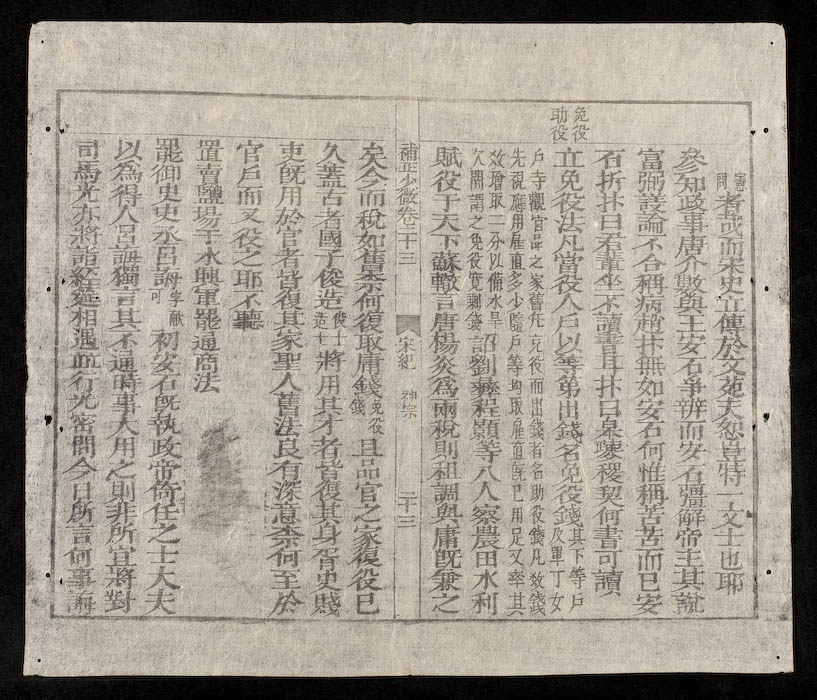 憲問
者哉而宋史立傳於文苑夫恕豈特一文士也耶
參知政事唐介數與王安石爭辨而安石彊解帝主其說
富弼議論不合稱病趙抃無如安石何惟稱苦苦而已安
石折抃曰若輩坐不讀書耳抃曰皋夔稷契何書可讀
免役
助役
立免役法凡當役人戶以等第出錢名免役錢其下等戶及單丁女
戶寺觀官品之家舊無免役而出錢者名助役錢凡敷錢
先視應用雇直多少隨戶等均取雇直旣已用足又率其
數增取二分以備水旱
欠閣謂之免役寬剩錢詔劉彝程顥等八人察農田水利
賦役于天下蘇轍言唐楊炎爲兩稅則租調與庸旣兼之
補正少微卷二十三 宋紀 神宗 二十三
矣今而稅如舊柰何復取庸錢免役錢且品官之家復役已
久蓋古者國子俊造俊士造士將用其才者皆復其身胥史賤
吏旣用於官者皆復其家聖人舊法良有深意柰何至於
官戶而又役之耶不聽
置賣鹽場于永興軍罷通商法
罷御史丞呂誨字獻可初安石旣執政帝倚任之士大夫
以爲得人呂誨獨言其不通時事大用之則非所宜將對
司馬光亦將詣經筵相遇並行光密問今日所言何事誨